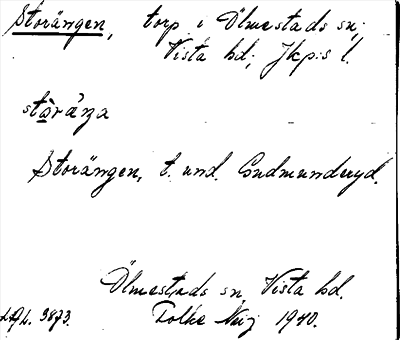 Storängen, torp i Ölmestads sn;
Vista hd; Jkp:s l.
stòráŋa
Storängen, t. und. Gudmunderyd.
Ölmestads sn, Vista hd.
LAL. 3873. Folke 1940.